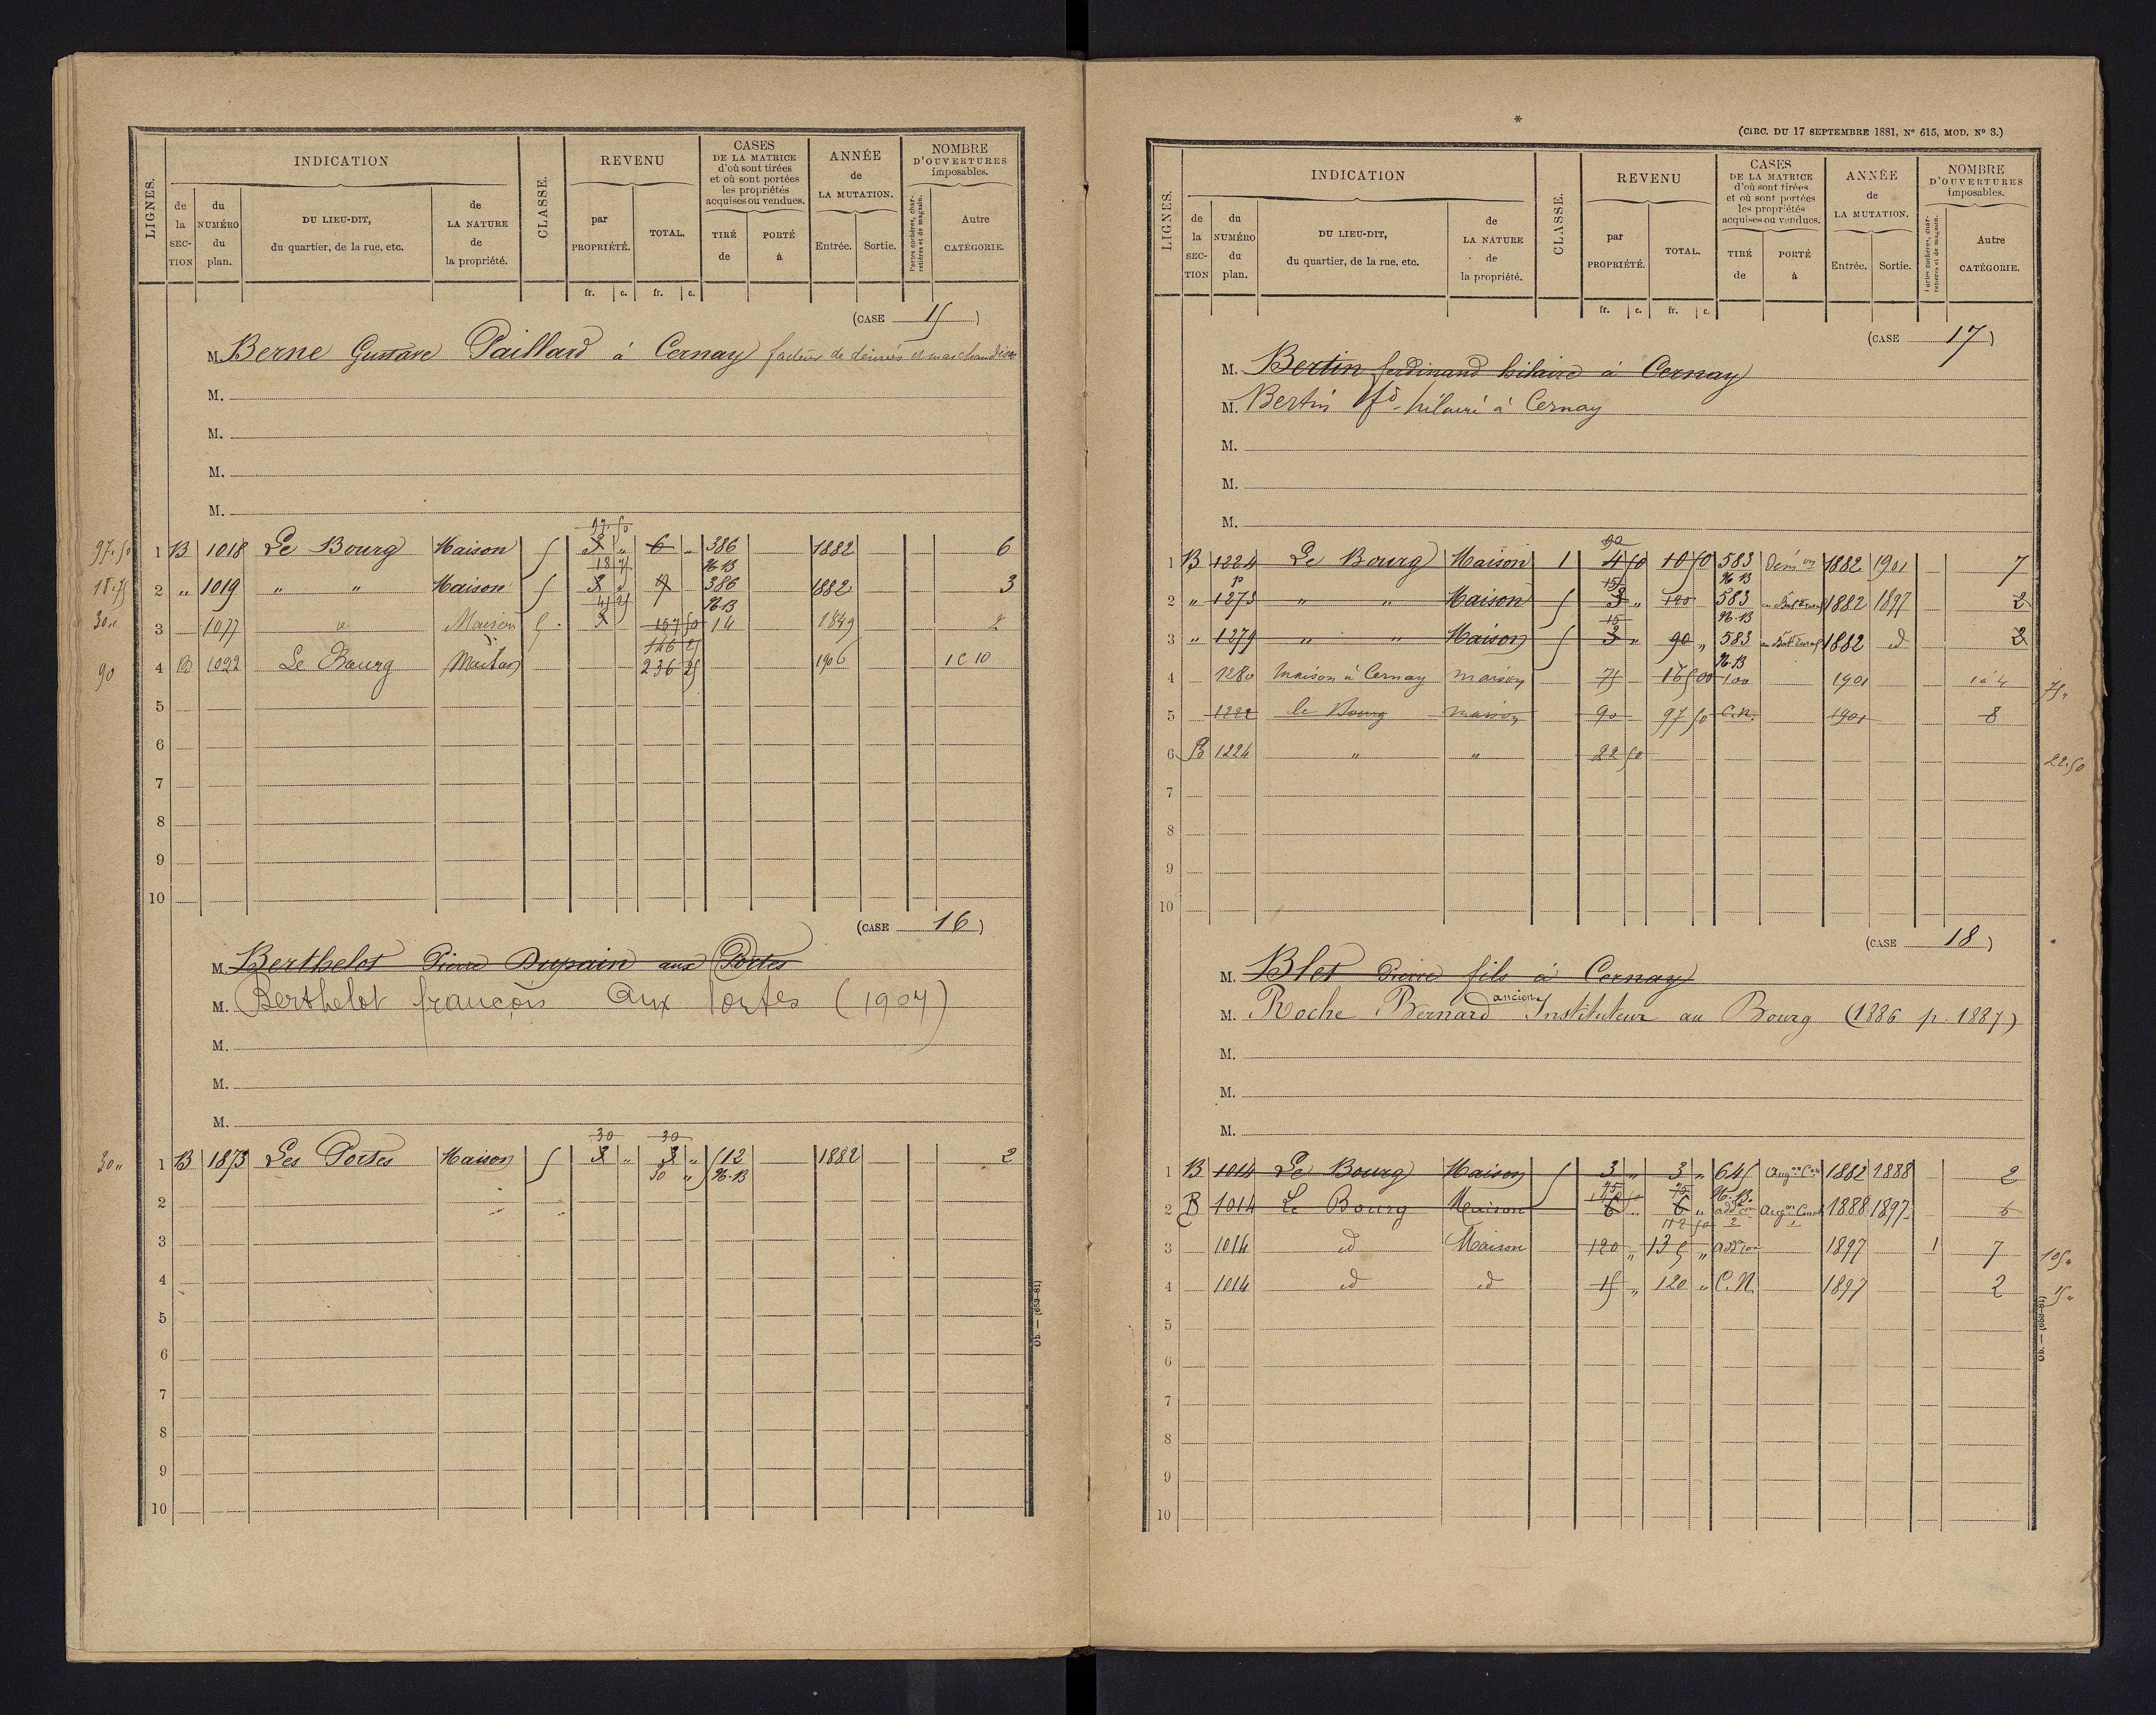 LIGNES. INDICATION CLASSE. REVENU CASES DE LA MATRICE d'où sont tirées et où sont portées les propriétés acquises ou vendues. ANNÉE de LA MUTATION. NOMBRE D'OUVERTURES imposables.
de la SECTION du NUMÉRO du plan. DU LIEU-DIT, du quartier, de la rue, etc. de LA NATURE de la propriété. par PROPRIÉTÉ. TOTAL. TIRÉ de PORTÉ à Entrée. Sortie. Portes cochères, charretières et de magasin. Autre CATÉGORIE.
fr. c. fr. c.
(CASE 15)
M. Berne Gustave Paillard à Cernay facteur de denrées et marchandises
M.
M.
M.
M.
97.50
97.50 1 B 1018 Le Bourg Maison 5 3 " 6 " 386 1882 6
18 75 N.B
18.75 2 " 1019 " " Maison 5 3 " 9 386 1882 3
N.B
30 " 3 1077 Maison 5 157 50 14 2
146 25
90 4 B 1022 Le Bourg Maison 236 25 1906 1 C 10
5
6
7
8
9
10
(CASE 16)
M. Berthelot Pierre Dupain aux Portes
M. Berthelot françois aux Portes (1907)
M.
M.
M.
30 30
30 " 1 B 1873 Les Portes Maison 5 3 " 3 " 512 1882 2
30 " N.B
2
3
4
5
6
7
8
9
10
Ob. — (653-81)
*
(CIRC. DU 17 SEPTEMBRE 1881, N° 615, MOD. N° 3.)
LIGNES. INDICATION CLASSE. REVENU CASES DE LA MATRICE d'où sont tirées et où sont portées les propriétés acquises ou vendues. ANNÉE de LA MUTATION. NOMBRE D'OUVERTURES imposables.
de la SECTION du NUMÉRO du plan. DU LIEU-DIT, du quartier, de la rue, etc. de LA NATURE de la propriété. par PROPRIÉTÉ. TOTAL. TIRÉ de PORTÉ à Entrée. Sortie. Portes cochères, charretières et de magasin. Autre CATÉGORIE.
fr. c. fr. c.
(CASE 17)
M. Bertin ferdinand hilaire à Cernay
M. Bertin fd hilaire à Cernay
M.
M.
M.
90
1 B 1224 Le Bourg Maison 1 4 50 10 50 583 Dém on 1882 1901 7
N.B
2 " 1273 " " Maison 5 3 " 100 583 1882 1897 2
15 N.B
3 " 1279 " " Maison 5 3 " 90 " 583 1882 d 2
N.B
4 1280 Maison à Cernay maison 75 165 00 100 1901 1 à 4 75 "
5 1222 le Bourg maison 90 97 50 C.N. 1901 8
6 B 1224 " " 22 50 22.50
7
8
9
10
(CASE 18)
M. Blet Pierre fils à Cernay
M. Roche Bernard ancien Instituteur au Bourg (1886 p. 1887)
M.
M.
M.
1 B 1014 Le Bourg Maison 5 3 " 3 " 645 Augon Con 1882 1888 2
75 N.B.
2 B 1014 Le Bourg Maison 6 " 6 " addon Augon Const 1888 1897 6
112 50 2
3 1014 id Maison 120 " 135 " addon 1897 1 7 105 "
4 1014 id id 15 " 120 " C.N. 1897 2 15 "
5
6
7
8
9
10
Ob. — (653-81)